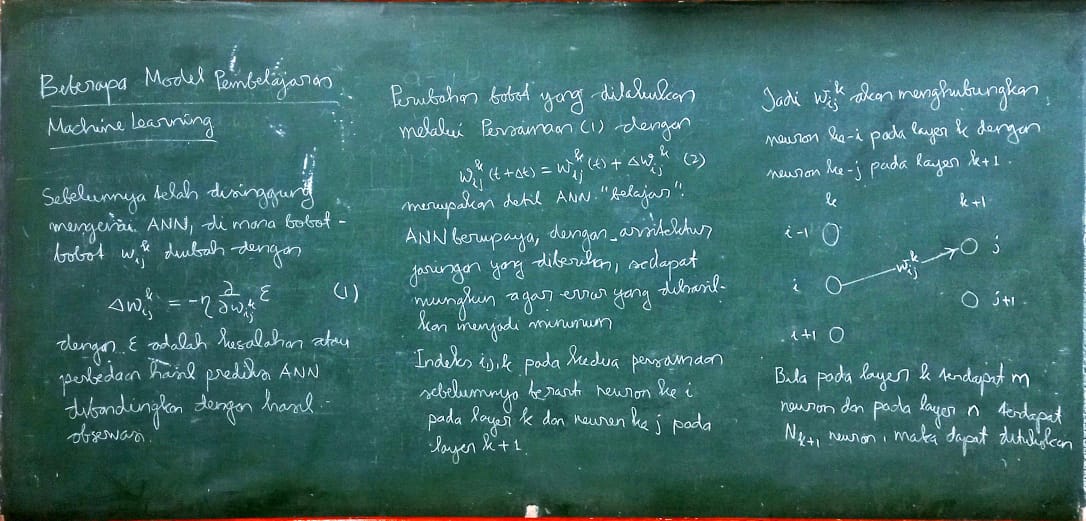 Beberapa Model Pembelajaran
Machine Learning
Sebelumnya telah disinggung
mengenai ANN, di mana bobot-
bobot w_ij^k diubah dengan
Δw_ij^k = -η ∂/∂w_ij^k ε (1)
dengan ε adalah kesalahan atau
perbedaan hasil prediksi ANN
dibandingkan dengan hasil
observasi.
Perubahan bobot yang dilakukan
melalui Persamaan (1) dengan
w_ij^k (t+Δt) = w_ij^k (t) + Δw_ij^k (2)
merupakan detil ANN "belajar".
ANN berupaya, dengan arsitektur
jaringan yang diberikan, sedapat
mungkin agar error yang dihasil-
kan menjadi minimum
Indeks i,j,k pada kedua persamaan
sebelumnya berarti neuron ke i
pada layer k dan neuron ke j pada
layer k+1.
Jadi w_ij^k akan menghubungkan
neuron ke-i pada layer k dengan
neuron ke-j pada layer k+1.
k k+1
i-1
i w_ij^k j
j+1
i+1
Bila pada layer k terdapat m
neuron dan pada layer n terdapat
N_k+1 neuron, maka dapat dituliskan